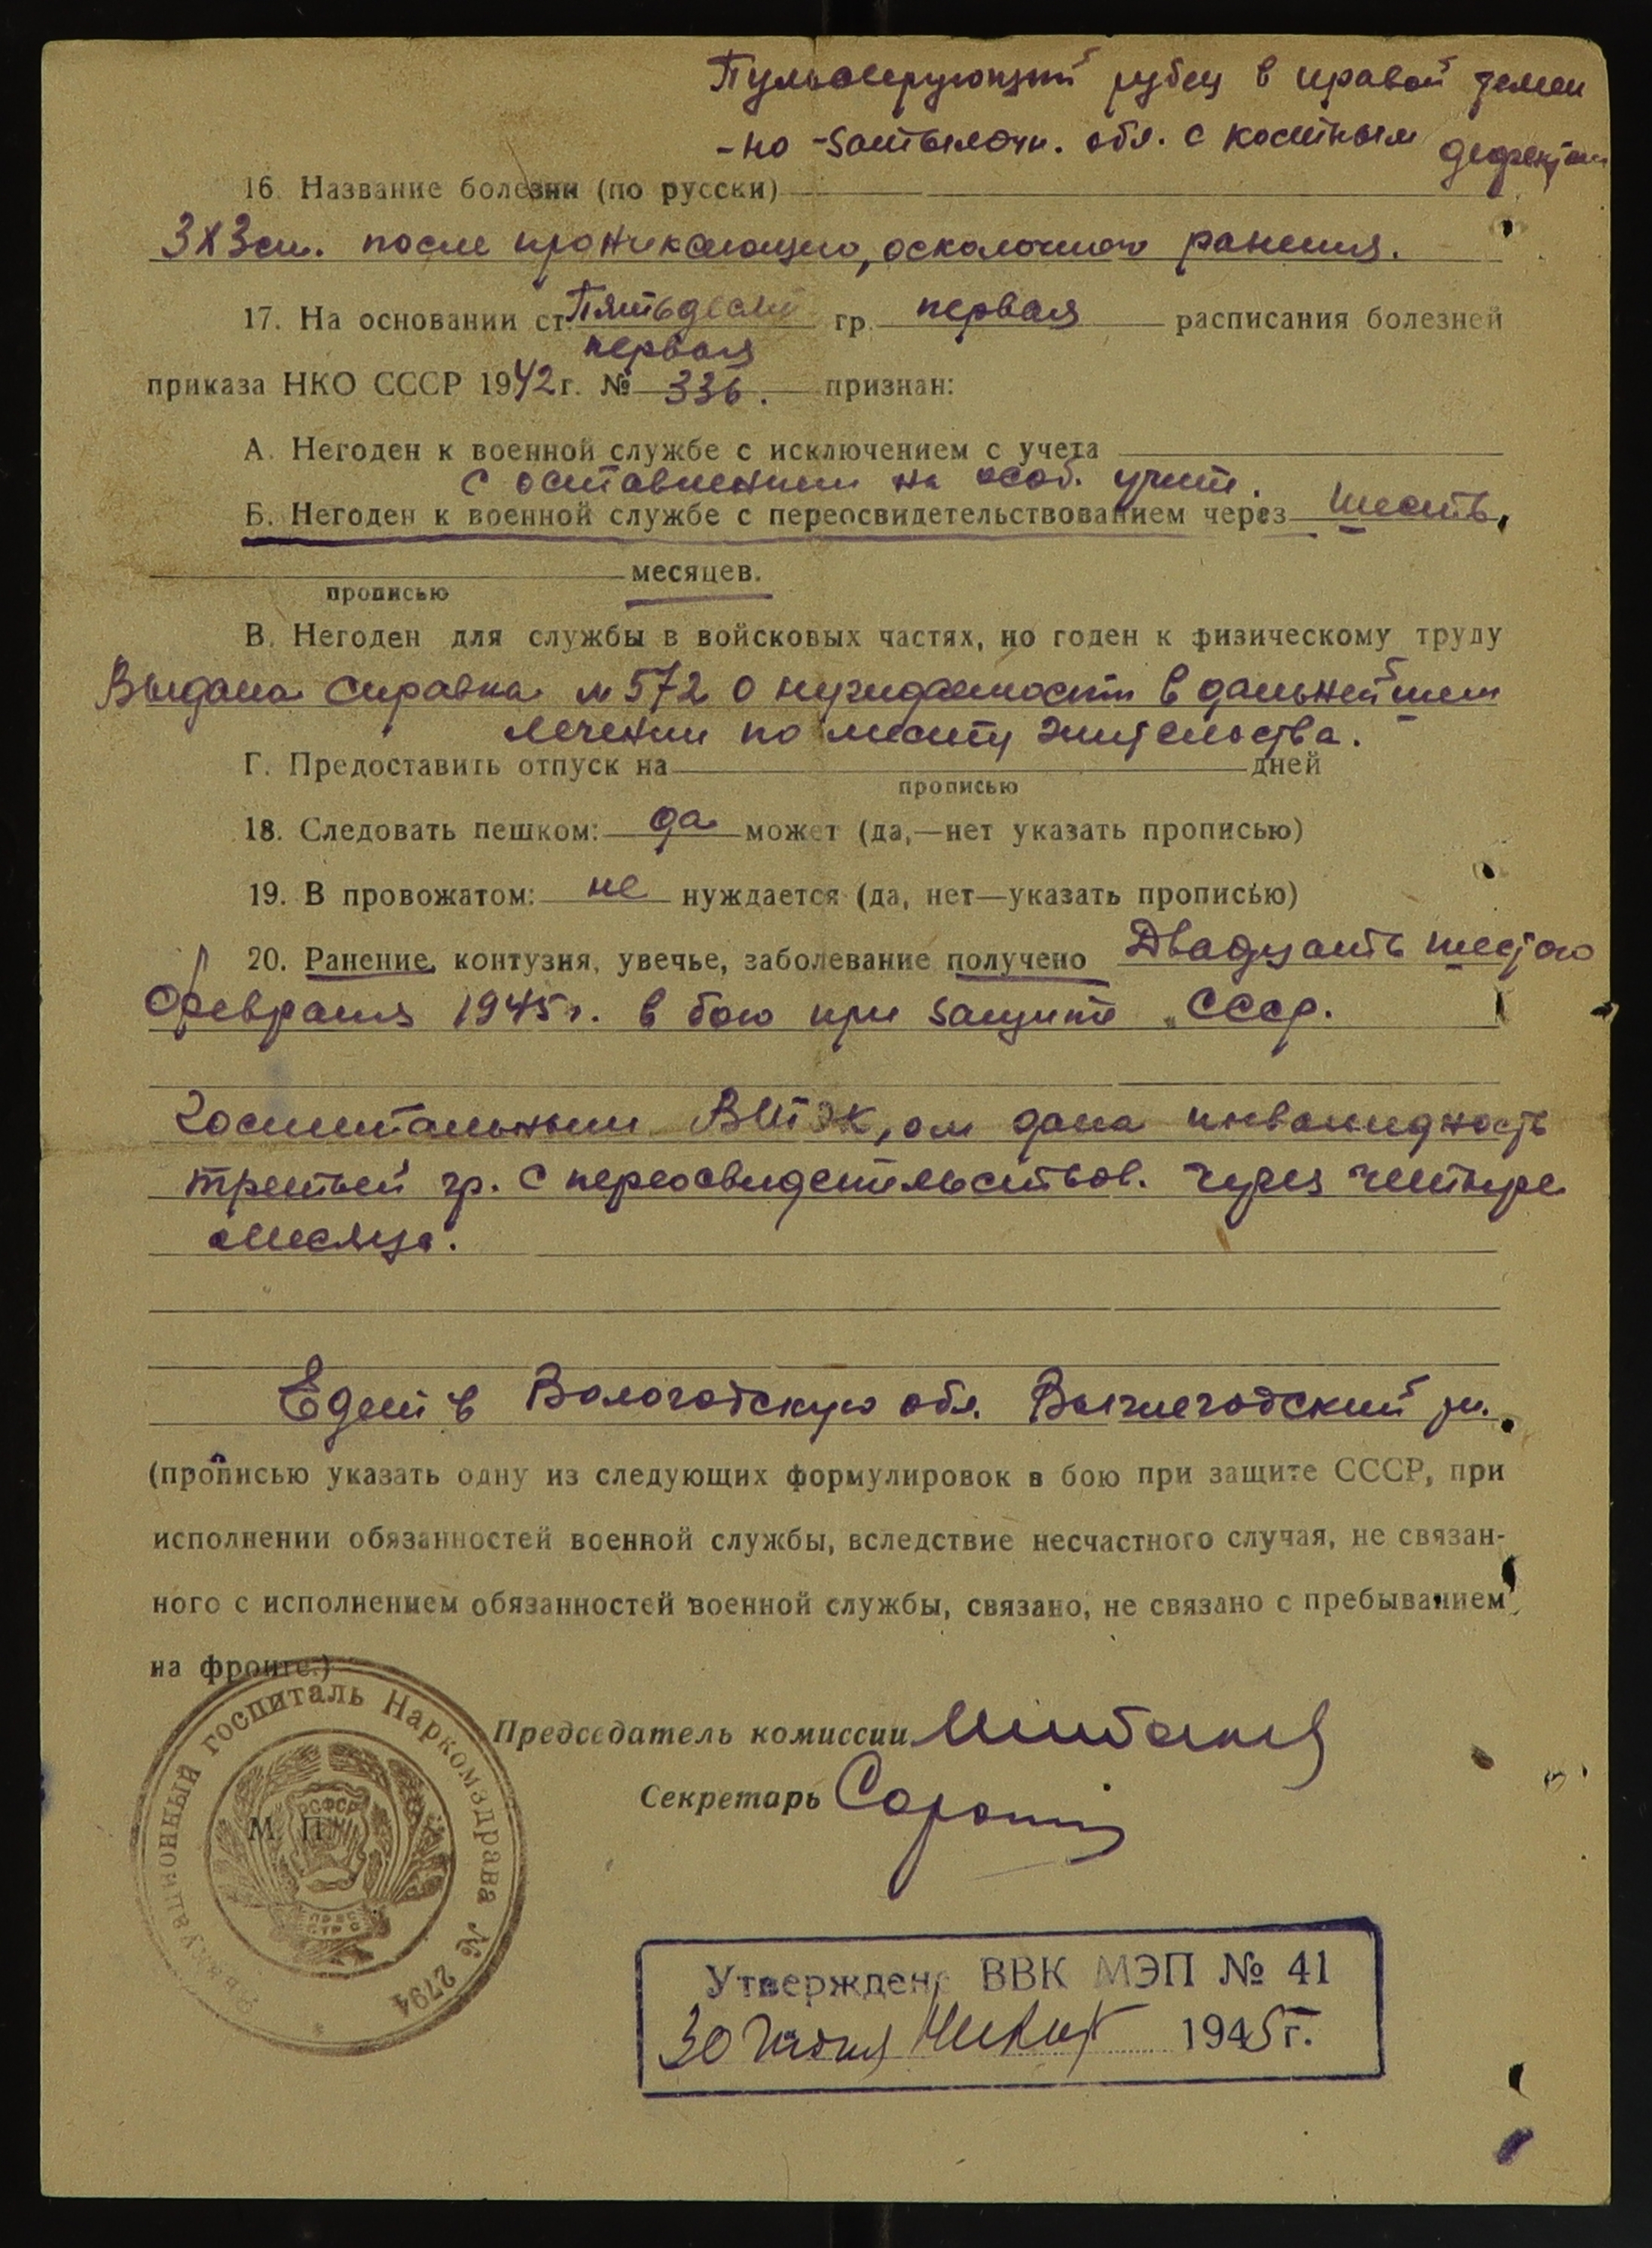 Пульсирующий рубец в правой темен
-но-затылочн. обл. с костным дефектом
16. Название болезни (по русски)
3х3см. после проникающего, осколочного ранения.
17. На основании ст. Пятьдесят первая гр. первая расписания болезней
приказа НКО СССР 1942 г. № 336. признан:
А. Негоден к военной службе с исключением с учета
с оставлением на особ. учете.
Б. Негоден к военной службе с переосвидетельствованием через шесть
месяцев.
прописью
В. Негоден для службы в войсковых частях, но годен к физическому труду
Выдана справка № 572 о нуждаемости в дальнейшем
лечении по месту жительства.
Г. Предоставить отпуск на дней
прописью
18. Следовать пешком: да может (да,—нет указать прописью)
19. В провожатом: не нуждается (да, нет—указать прописью)
20. Ранение, контузия, увечье, заболевание получено Двадцать шестого
февраля 1945 г. в бою при защите СССР.
Госпитальным ВТЭК, ом дана инвалидность
третьей гр. с переосвидетельствов. через четыре
месяца.
Едет в Вологодскую обл. Вычегодский рн.
(прописью указать одну из следующих формулировок в бою при защите СССР, при
исполнении обязанностей военной службы, вследствие несчастного случая, не связан-
ного с исполнением обязанностей военной службы, связано, не связано с пребыванием
на фронте.)
Председатель комиссии
Секретарь
М. П.
Эвакуационный госпиталь Наркомздрава № 2794
РСФСР
Утверждено ВВК МЭП № 41
30 июня 1945 г.